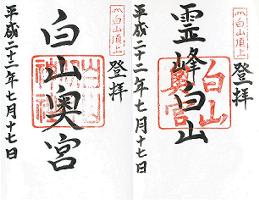 白山頂上
登拝
霊峰白山
白山奥宮
平成二十二年七月十七日
白山頂上
登拝
白山奥宮
平成二十二年七月十七日